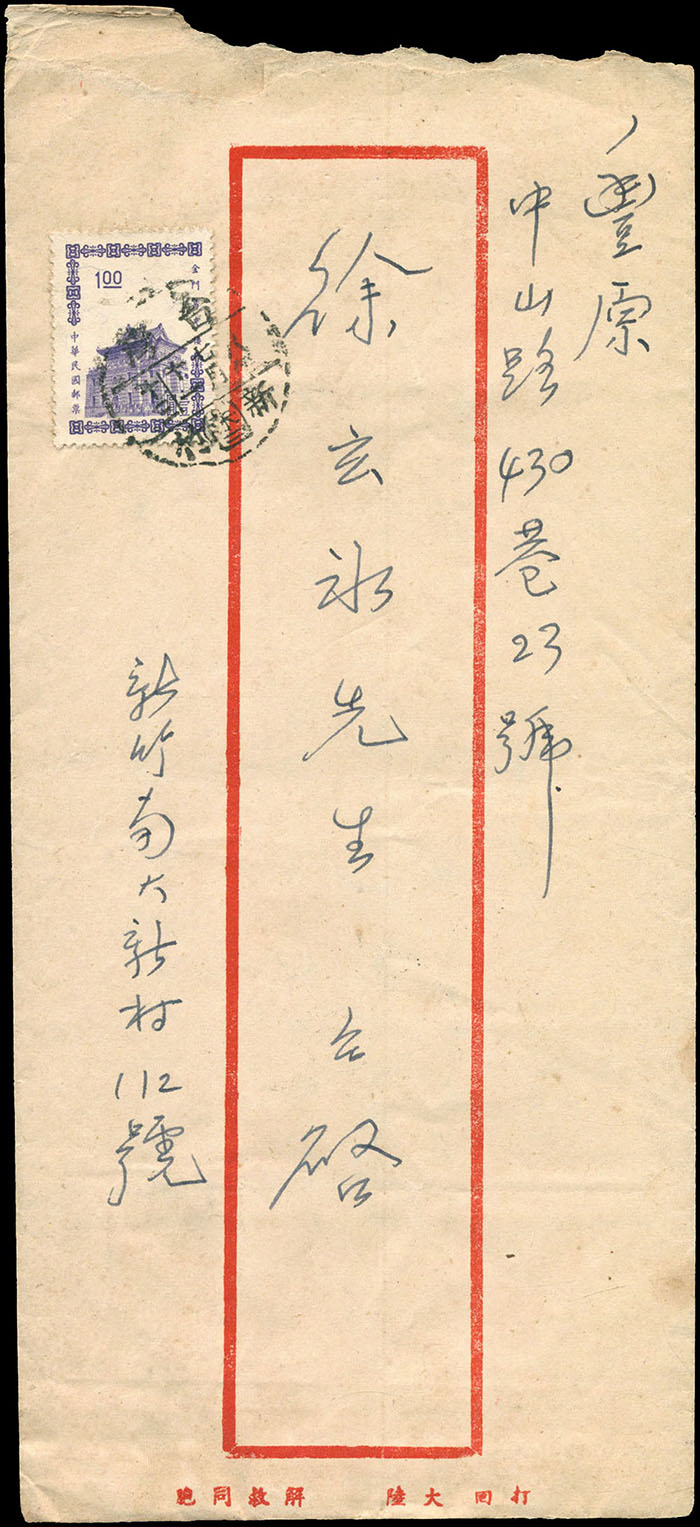 豐原
中山路430巷23號
徐玄冰先生 台啓
新竹南大新村112號
1.00
金門
中華民國郵票
新竹
打回大陸 解救同胞